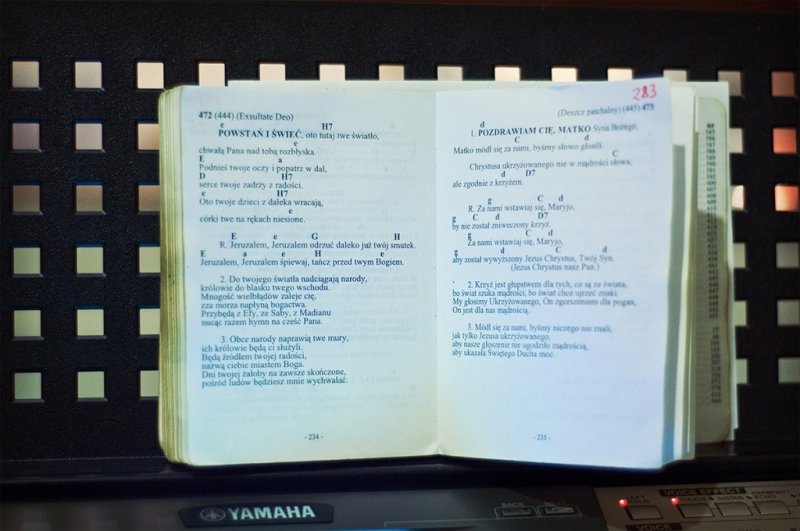 472 (444) (Exsultate Deo)
e H7
POWSTAŃ I ŚWIEĆ, oto tutaj twe światło,
e
chwała Pana nad tobą rozbłyska.
E a
Podnieś twoje oczy i popatrz w dal,
D H7
serce twoje zadrży z radości.
e H7
Oto twoje dzieci z daleka wracają,
e
córki twe na rękach niesione.
E e G H
R. Jeruzalem, Jeruzalem odrzuć daleko już twój smutek.
E a e H e
Jeruzalem, Jeruzalem śpiewaj, tańcz przed twym Bogiem.
2. Do twojego światła nadciągają narody,
królowie do blasku twego wschodu.
Mnogość wielbłądów zaleje cię,
zza morza napłyną bogactwa.
Przybędą z Efy, ze Saby, z Madianu
nucąc razem hymn na cześć Pana.
3. Obce narody naprawią twe mury,
ich królowie będą ci służyli.
Będą źródłem twojej radości,
nazwą ciebie miastem Boga.
Dni twojej żałoby na zawsze skończone,
pośród ludów będziesz mnie wychwalać.
- 234 -
283
(Deszcz paschalny) (445) 473
d
1. POZDRAWIAM CIĘ, MATKO Syna Bożego,
C d
Matko módl się za nami, byśmy słowo głosili
C
Chrystusa ukrzyżowanego nie w mądrości słowa,
d D7
ale zgodnie z krzyżem.
g C d
R. Za nami wstawiaj się, Maryjo,
g C D7
by nie został zniweczony krzyż.
g C d
Za nami wstawiaj się, Maryjo,
g d C d
aby został wywyższony Jezus Chrystus, Twój Syn.
(Jezus Chrystus nasz Pan.)
2. Krzyż jest głupstwem dla tych, co są ze świata,
bo świat szuka mądrości, bo świat chce ujrzeć znaki.
My głosimy Ukrzyżowanego, On zgorszeniem dla pogan,
On jest dla nas mądrością.
3. Módl się za nami, byśmy niczego nie znali,
jak tylko Jezusa ukrzyżowanego,
aby nasze głoszenie nie ugodziło mądrością,
aby ukazała Świętego Ducha moc.
- 235 -
YAMAHA
BACK NEXT
VOICE EFFECT
TOUCH SUSTAIN HARMONY/
ECHO
VOICE